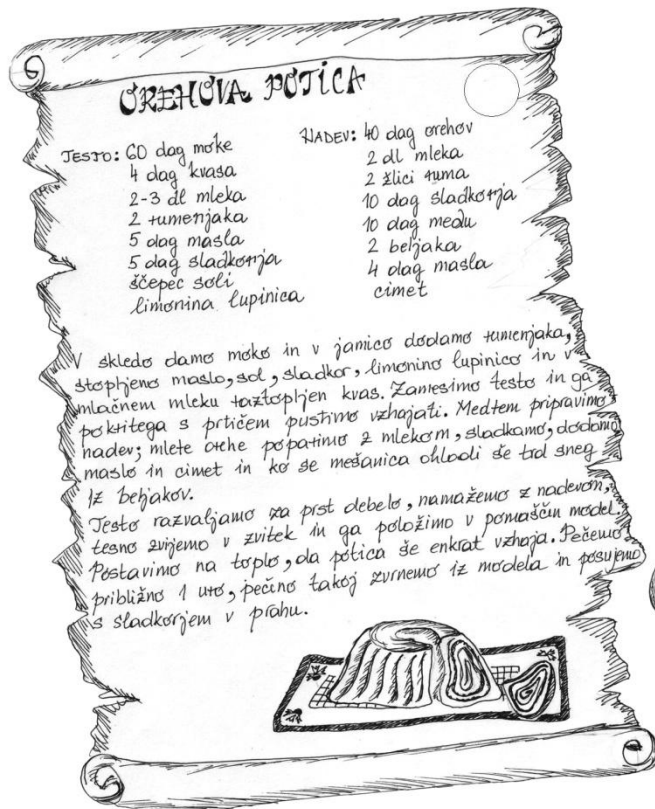 OREHOVA POTICA
TESTO: 60 dag moke
4 dag kvasa
2-3 dl mleka
2 rumenjaka
5 dag masla
5 dag sladkorja
ščepec soli
limonina lupinica
NADEV: 40 dag orehov
2 dl mleka
2 žlici ruma
10 dag sladkorja
10 dag medu
2 beljaka
4 dag masla
cimet
V skledo damo moko in v jamico dodamo rumenjaka,
stopljeno maslo, sol, sladkor, limonino lupinico in v
mlačnem mleku raztopljen kvas. Zamesimo testo in ga
pokritega s prtičem pustimo vzhajati. Medtem pripravimo
nadev; mlete orehe poparimo z mlekom, sladkamo, dodamo
maslo in cimet in ko se mešanica ohladi še trd sneg
iz beljakov.
Testo razvaljamo za prst debelo, namažemo z nadevom,
tesno zvijemo v zvitek in ga položimo v pomaščen model.
Postavimo na toplo, da potica še enkrat vzhaja. Pečemo
približno 1 uro, pečeno takoj zvrnemo iz modela in posujemo
s sladkorjem v prahu.